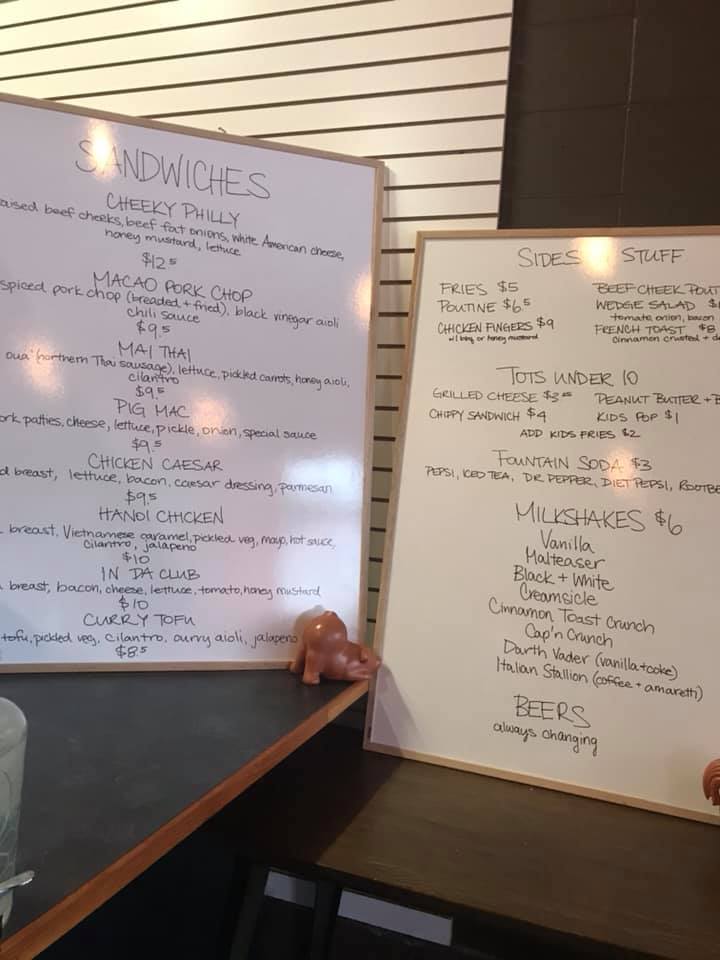 SANDWICHES
CHEEKY PHILLY
beef cheeks, beef fat onions, white American cheese,
honey mustard, lettuce
$12.5
MACAO PORK CHOP
spiced pork chop (breaded + fried), black vinegar aioli
chili sauce
$9.5
MAI THAI
oua' (northern Thai sausage), lettuce, pickled carrots, honey aioli,
cilantro
$9.5
PIG MAC
patties, cheese, lettuce, pickle, onion, special sauce
$9.5
CHICKEN CAESAR
breast, lettuce, bacon, caesar dressing, parmesan
$9.5
HANOI CHICKEN
breast, Vietnamese caramel, pickled veg, mayo, hot sauce,
cilantro, jalapeno
$10
IN DA CLUB
breast, bacon, cheese, lettuce, tomato, honey mustard
$10
CURRY TOFU
tofu, pickled veg, cilantro, curry aioli, jalapeno
$8.5
SIDES STUFF
FRIES $5
POUTINE $6.5
CHICKEN FINGERS $9
w/ bbq or honey mustard
BEEF CHEEK POUT
WEDGE SALAD
tomato, onion, bacon
FRENCH TOAST $8
cinnamon crusted +
TOTS UNDER 10
GRILLED CHEESE $3.50 PEANUT BUTTER +
CHIPPY SANDWICH $4 KIDS POP $1
ADD KIDS FRIES $2
FOUNTAIN SODA $3
PEPSI, ICED TEA, DR. PEPPER, DIET PEPSI, ROOTBE
MILKSHAKES $6
Vanilla
Malteaser
Black + White
Creamsicle
Cinnamon Toast Crunch
Cap'n Crunch
Darth Vader (vanilla + coke)
Italian Stallion (coffee + amaretti)
BEERS
always changing